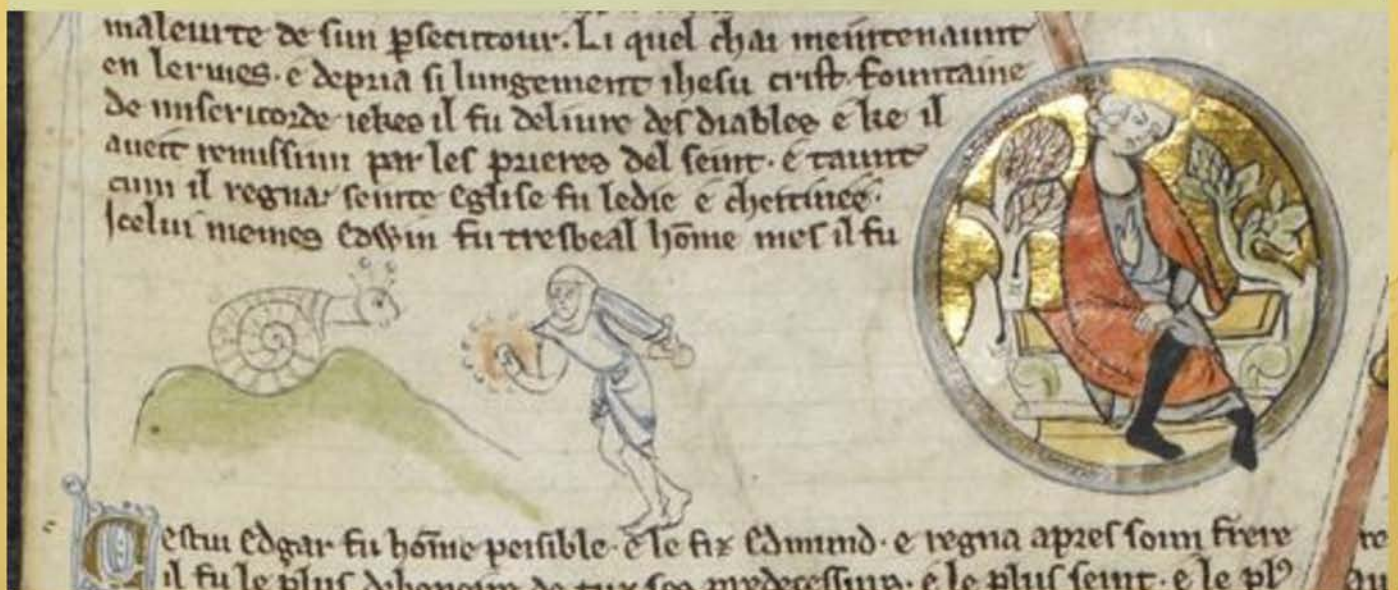 maleurte de sun ꝑsecutour. Li quel chai meintenaunt
en lermes. e depria si lungement ihesu crist. fountaine
de misericorde iekes il fu deliure des diables e ke il
aueit remissiun par les prieres del seint. e taunt
cum il regna seinte Eglise fu ledie e cheitiuee.
Icelui memes Edwin fu tresbeal hōme mes il fu
Cestui Edgar fu hōme peisible. e le fiz Edmund. e regna apres soun frere
il fu le plus de tuz ses predecessurs. e le plus seint. e le plꝰ